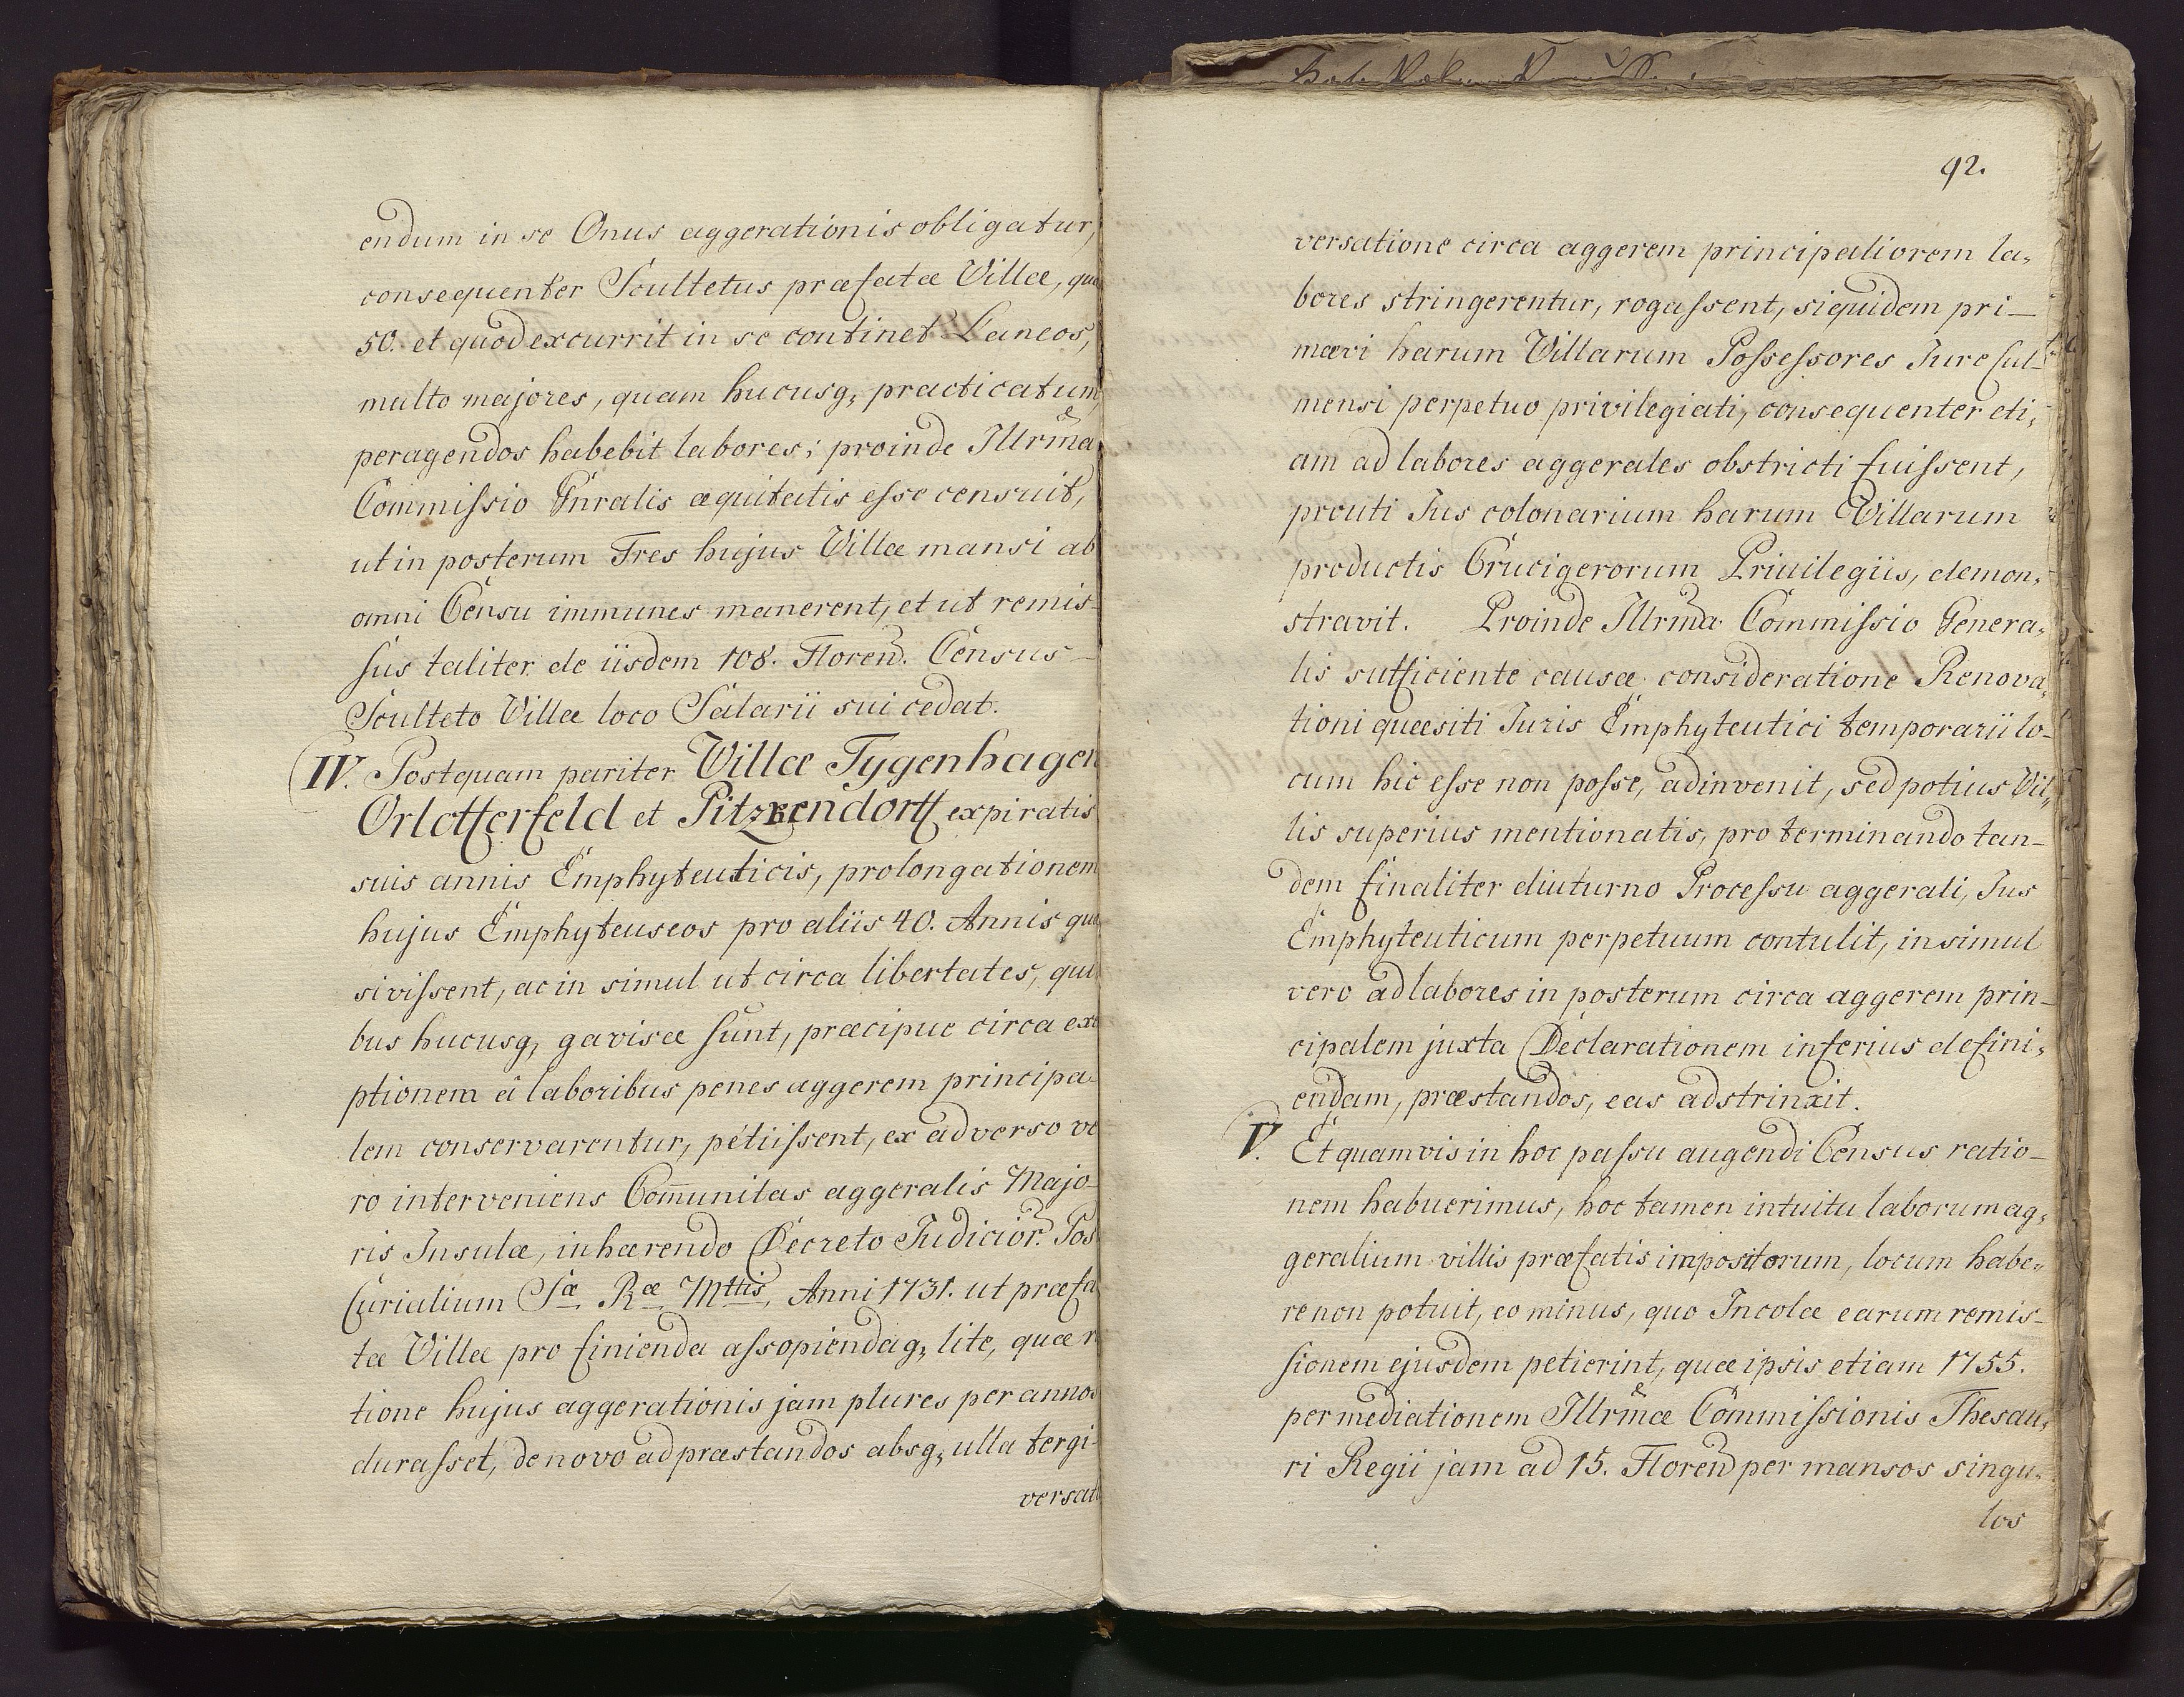 endum in se Onus aggerationis obligatur,
consequenter Scultetus præfatæ Villæ, quæ
50. et quod excurrit in se continet Laneos,
multo majores, quam hucusq, practicatum,
peragendos habebit labores; proinde Illrma
Commissio Gnralis æquitatis esse censuit,
ut in posterum Tres hujus Villæ mansi ab
omni Censu immunes manerent, et ut remis-
sus taliter de iisdem 108. Floren. Census
Sculteto Villæ loco Salarii sui cedat.
IV. Postquam pariter Villæ Tygenhagen
Orlofferfeld et Pitzkendorff expiratis
suis annis Emphyteuticis, prolongationem
hujus Emphyteuseos pro aliis 40. Annis quæ
sivissent, ac in simul ut circa libertates, qui
bus hucusq, gavisæ sunt, præcipue circa exe
ptionem â laboribus penes aggerem principa
lem conservarentur, petiissent, ex adverso ve
ro interveniens Com̄unitas aggeralis Majo-
ris Insulæ, inhærendo Decreto Judicior. Pos
Curialium Sæ Ræ Mttis, Anni 1731. ut præfa
tæ Villæ pro finienda assopiendaq, lite, quæ r
tione hujus aggerationis jam plures per annos
durasset, de novo ad præstandos absq, ulla tergi-
versati
92.
versatione circa aggerem principaliorem la,
bores stringerentur, rogassent, siquidem pri-
mævi harum Villarum Possessores Jure Cul-
mensi perpetuo privilegiati, consequenter eti,
am ad labores aggerales obstricti fuissent,
prouti Jus colonarium harum Villarum
productis Crucigerorum Priuilegiis, demon,
stravit. Proinde Illrma Commissio Genera,
lis sufficiente causæ consideratione Renova,
tioni quæsiti Juris Emphyteutici temporarii lo-
cum hic esse non posse, adinvenit, sed potius Vil,
lis superius mentionatis, pro terminando tan-
dem finaliter diuturno Processu aggerali, Jus
Emphyteuticum perpetuum contulit, insimul
vero ad labores in posterum circa aggerem prin-
cipalem juxta Declarationem inferius defini,
endam, præstandos, eas adstrinxit.
V. Et quamvis in hoc passu augendi Census ratio-
nem habuerimus, hoc tamen intuitu laborum ag,
geralium villis præfatis impositorum, locum habe,
re non potuit, eo minus, quo Incolæ earum remis-
sionem ejusdem petierint, quæ ipsis etiam 1755.
per mediationem Illrmæ Commissionis Thesau,
ri Regii jam ad 15. Floren per mansos singu,
los